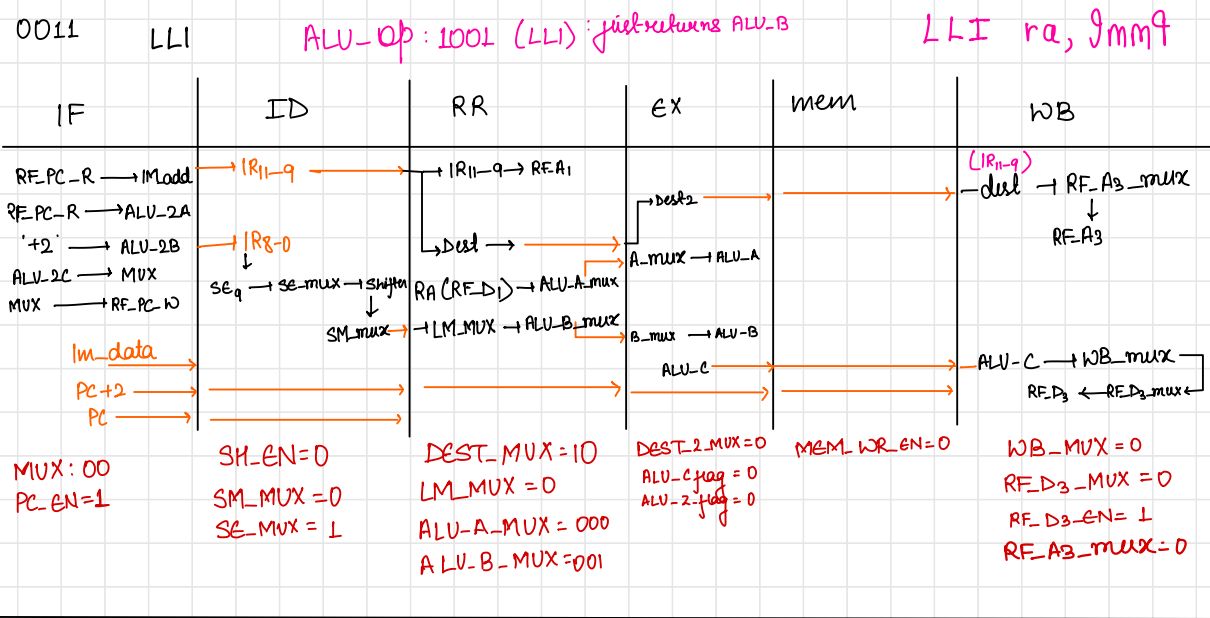 0011 LLI ALU_Op : 1001 (LLI) : just returns ALU_B LLI ra, Imm9
IF ID RR EX mem WB
RF_PC_R → IMadd
RF_PC_R → ALU_2A
'+2' → ALU_2B
ALU_2C → MUX
MUX → RF_PC_W
Im_data
PC+2
PC
MUX: 00
PC_EN=1
IR11-9
IR8-0
SE9 → SE_mux → Shifter
SM_mux
SH_EN=0
SM_MUX=0
SE_MUX = 1
IR11-9 → RF_A1
Dest →
RA (RF_D1) → ALU_A_mux
LM_MUX → ALU_B_mux
DEST_MUX=10
LM_MUX = 0
ALU_A_MUX = 000
ALU_B_MUX=001
Dest2
A_mux → ALU_A
B_mux → ALU-B
ALU_C
DEST_2_MUX=0
ALU_Cflag = 0
ALU_Z-flag = 0
MEM_WR_EN=0
(IR11-9)
dest → RF_A3_mux
RF_A3
ALU-C → WB_mux
RF_D3 ← RF_D3_mux
WB_MUX = 0
RF_D3_MUX = 0
RF_D3_EN= 1
RF_A3_mux=0